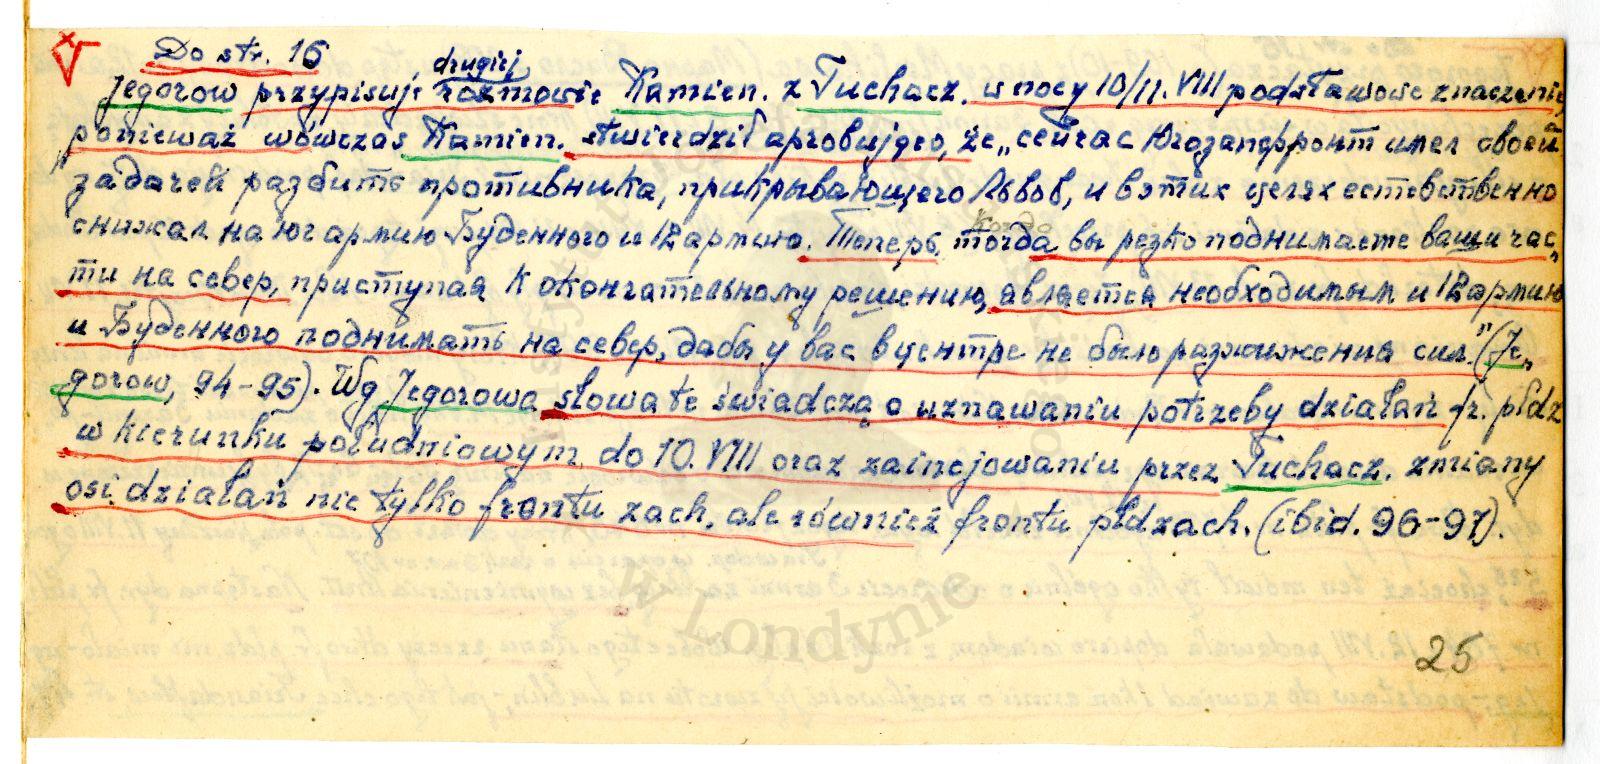 Do str. 16
drugiej
Jegorow przypisuje rozmowie Kamien. z Tuchacz. w nocy 10/11. VIII podstawowe znaczenie
ponieważ wówczas Kamien. stwierdził aprobująco, że „сейчас Югозапфронт имел своей
задачей разбить противника, прикрывающего Львов, и в этих целях естественно
снижал на юг армию Буденного и 12 армию. Теперь, тогда вы резко поднимаете ваши час-
когда
ти на север, приступая к окончательному решению, является необходимым и 12 армию
и Буденного поднимать на север, дабы у вас в центре не было разжижения сил." (Je-
gorow, 94-95). Wg Jegorowa słowa te świadczą o uznawaniu potrzeby działań fr. płdz
w kierunku południowym do 10. VIII oraz zainicjowaniu przez Tuchacz. zmiany
osi działań nie tylko frontu zach. ale również frontu płdzach. (ibid. 96-97).
w Londynie
25